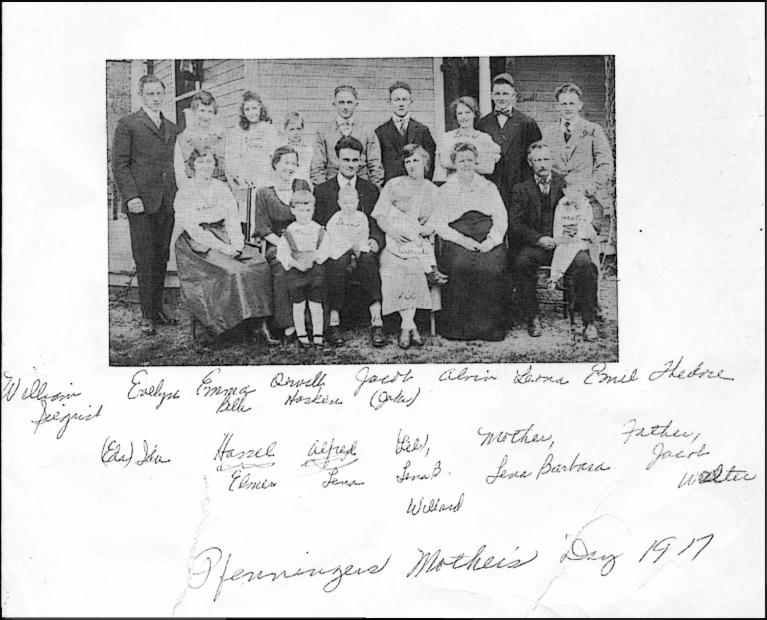 William Evelyn Emma Orville Jacob Alvin Leona Emil Thedore
Belle Hoskin (Jake)
(Eda) Ida Hassel Alfred (Lil), Mother, Father,
Elmer Lena Lena B. Lena Barbara Jacob
Willard Walter
Pfenningers Mother's Day 1917